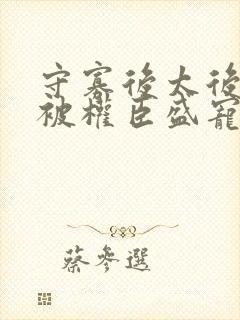 守寡後太後
被權臣盛寵
蔡參選